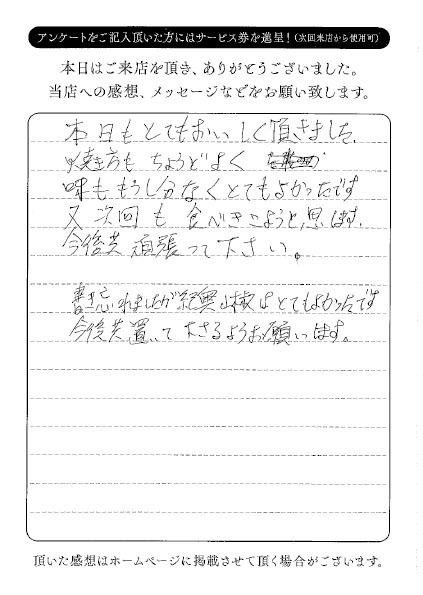 アンケートをご記入頂いた方にはサービス券を進呈！（次回来店から使用可）
本日はご来店を頂き、ありがとうございました。
当店への感想、メッセージなどをお願い致します。
本日もとてもおいしく頂きました。
焼き方も ちょうどよく
味ももうし分なくとてもよかったです
又 次回も 食べきこようと思います。
今後共 頑張って下さい。
書き忘れましたが紀奥山椒はとてもよかったです
今後共置いて下さるようお願いします。
頂いた感想はホームページに掲載させて頂く場合がございます。